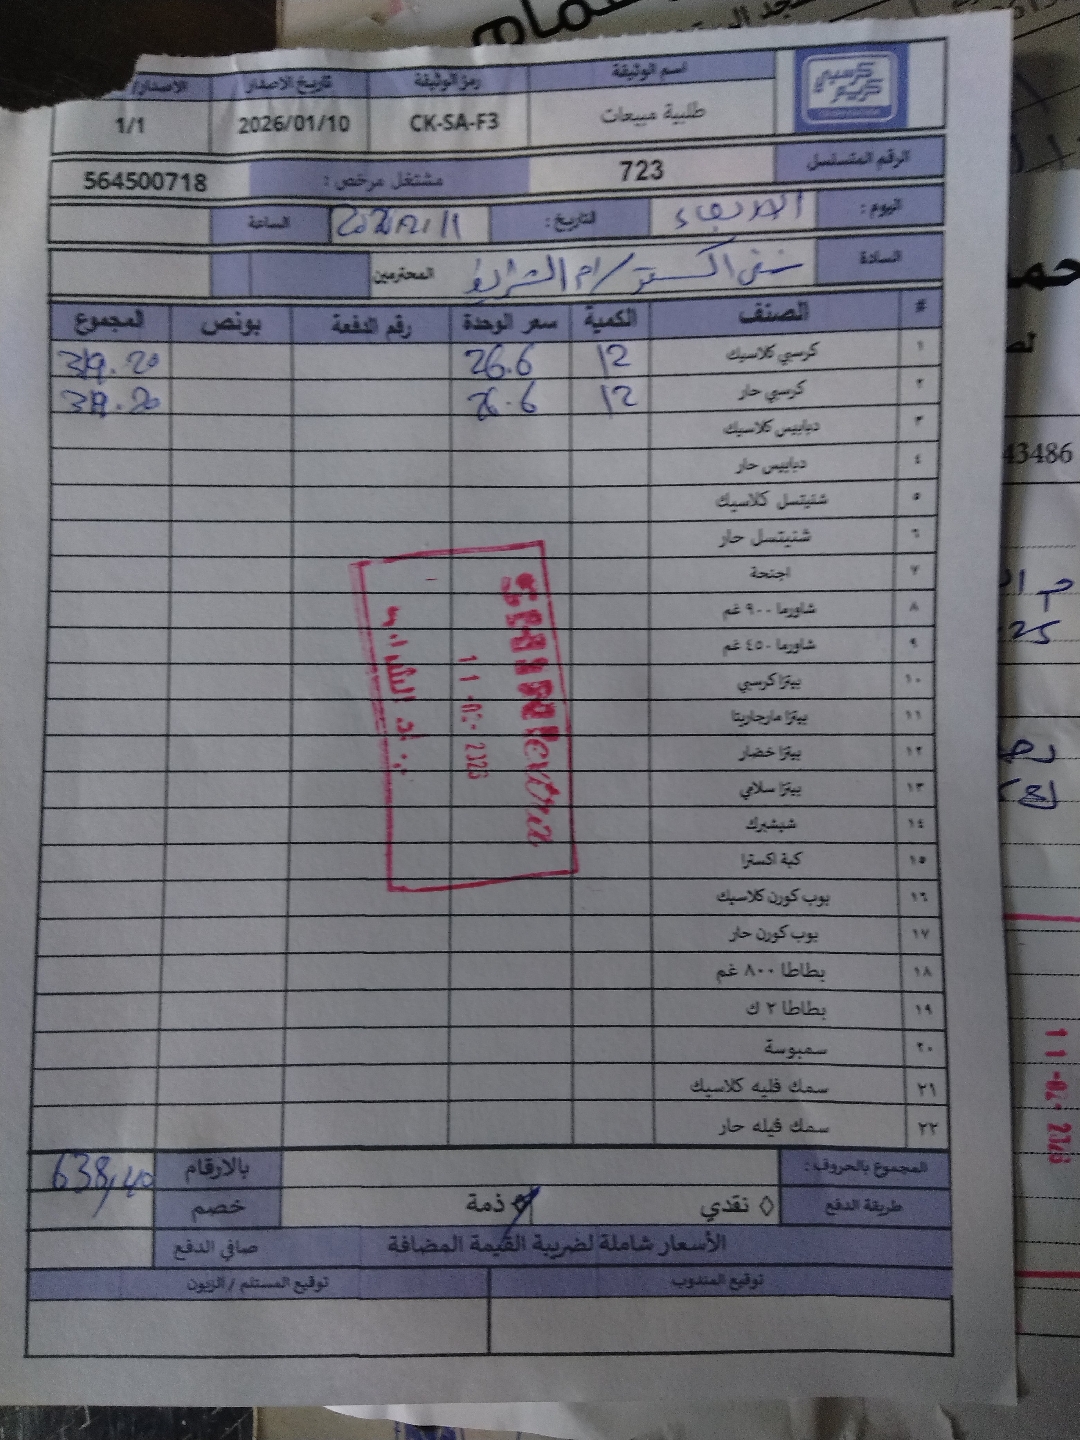 كرسبي كريم
اسم الوثيقة رمز الوثيقة تاريخ الاصدار الاصدار/
طلبية مبيعات CK-SA-F3 2026/01/10 1/1
الرقم المتسلسل 723 مشتغل مرخص : 564500718
اليوم : الاربعاء التاريخ : الساعة
السادة / ام الشرايط المحترمين
# الصنف الكمية سعر الوحدة رقم الدفعة بونص المجموع
١ كرسبي كلاسيك 12 26.6 319.20
٢ كرسبي حار 12 26.6 319.20
٣ دبابيس كلاسيك
٤ دبابيس حار
٥ شنيتسل كلاسيك
٦ شنيتسل حار
٧ اجنحة
٨ شاورما ٩٠٠ غم
٩ شاورما ٤٥٠ غم
١٠ بيتزا كرسبي
١١ بيتزا مارجاريتا
١٢ بيتزا خضار
١٣ بيتزا سلامي
١٤ شيشبرك
١٥ كبة اكسترا
١٦ بوب كورن كلاسيك
١٧ بوب كورن حار
١٨ بطاطا ٨٠٠ غم
١٩ بطاطا ٢ ك
٢٠ سمبوسة
٢١ سمك فليه كلاسيك
٢٢ سمك فيله حار
المجموع بالحروف : بالارقام 638,40
طريقة الدفع ◊ نقدي ◊ ذمة خصم
الأسعار شاملة لضريبة القيمة المضافة صافي الدفع
توقيع المندوب توقيع المستلم / الزبون
43486
25